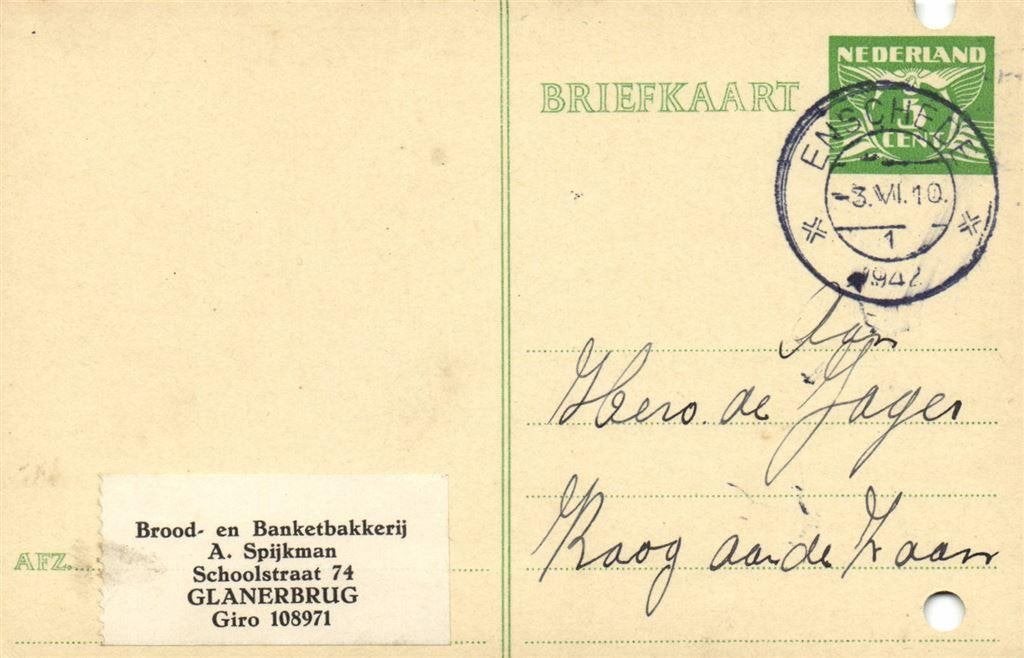 NEDERLAND
BRIEFKAART
5
CENT
ENSCHEDE
3.VI.10.
1
1942
Aan
Hero. de Jager
Koog aan de Zaan
AFZ.
Brood- en Banketbakkerij
A. Spijkman
Schoolstraat 74
GLANERBRUG
Giro 108971